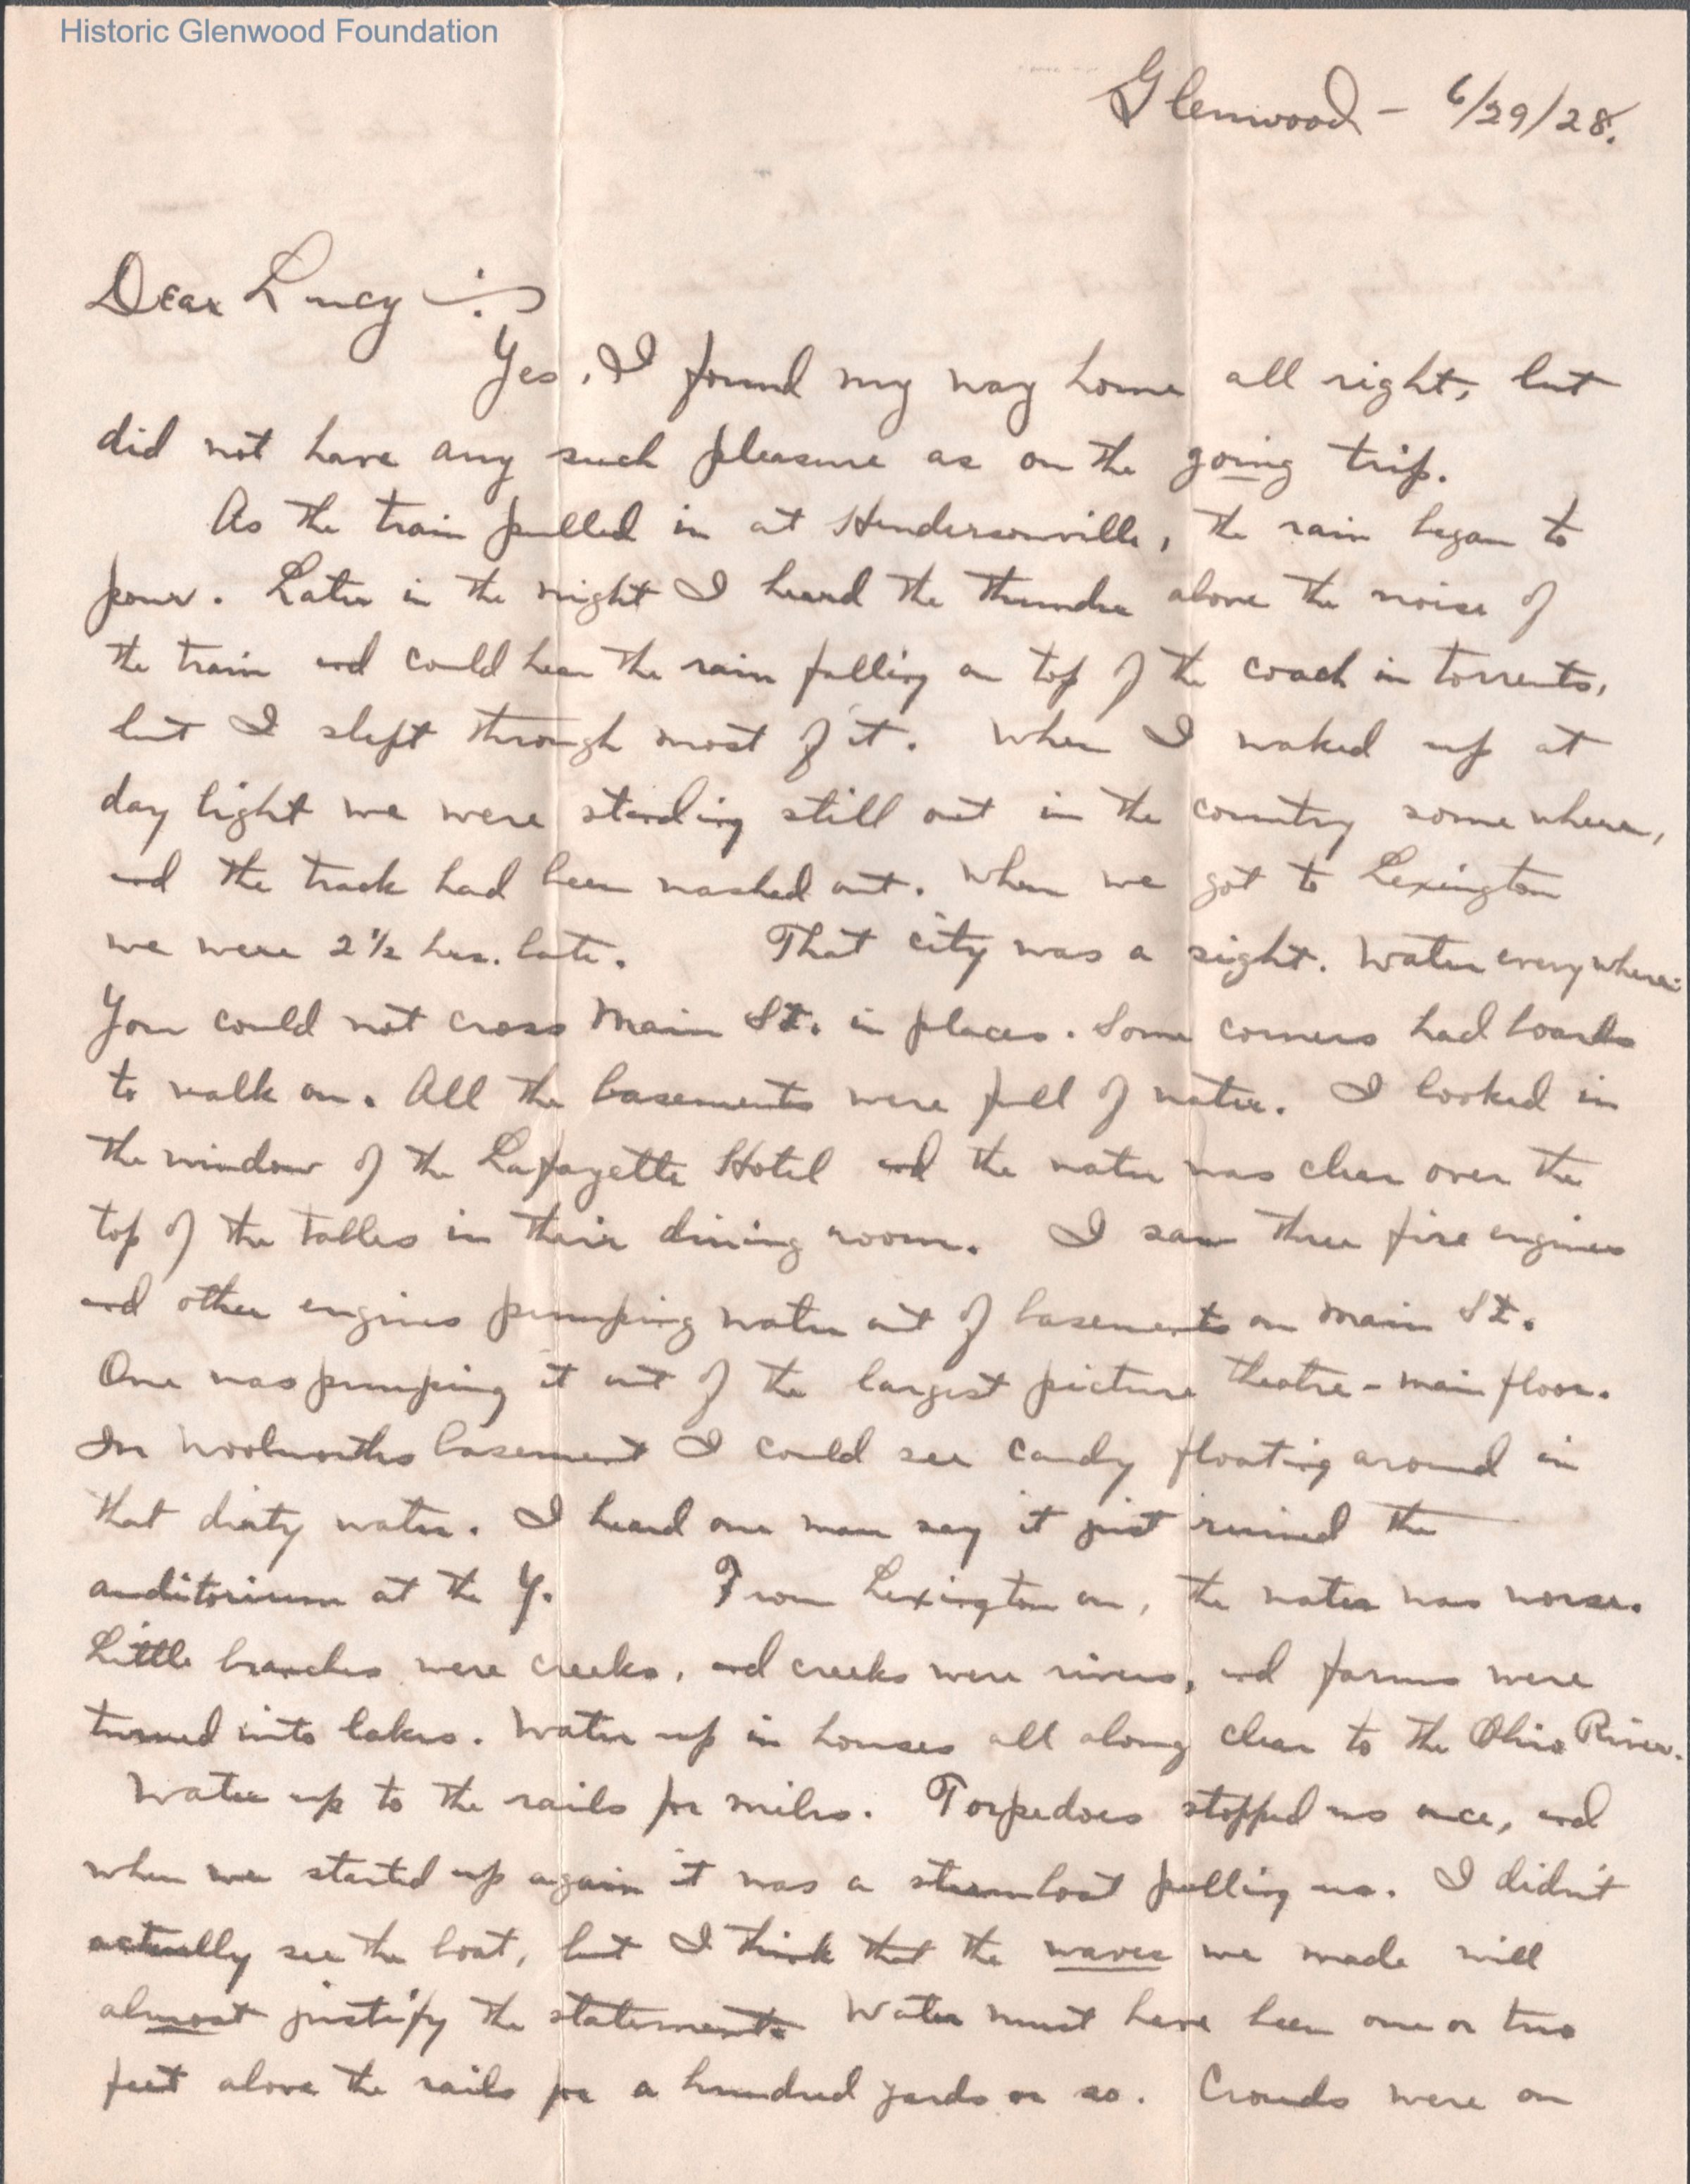 Historic Glenwood Foundation
Glenwood - 6/29/28.
Dear Lucy :
Yes, I found my way home all right, but
did not have any such pleasure as on the going trip.
As the train pulled in at Hendersonville, the rain began to
pour. Later in the night I heard the thunder above the noise of
the train and could hear the rain falling on top of the coach in torrents,
but I slept through most of it. When I waked up at
day light we were standing still out in the country some where,
and the track had been washed out. When we got to Lexington
we were 2 1/2 hrs. late. That city was a sight. Water everywhere.
You could not cross Main St. in places. Some corners had boards
to walk on. All the basements were full of water. I looked in
the window of the Lafayette Hotel and the water was clear over the
top of the tables in their dining room. I saw three fire engines
and other engines pumping water out of basements on Main St.
One was pumping it out of the largest picture theatre - main floor.
In Woolworths basement I could see candy floating around in
that dirty water. I heard one man say it just ruined the
auditorium at the Y. From Lexington on, the water was worse.
Little branches were creeks, and creeks were rivers, and farms were
turned into lakes. Water up in houses all along clear to the Ohio River.
Water up to the rails for miles. Torpedoes stopped us once, and
when we started up again it was a steamboat pulling us. I didn't
actually see the boat, but I think that the waves we made will
almost justify the statement. Water must have been one or two
feet above the rails for a hundred yards or so. Crowds were on